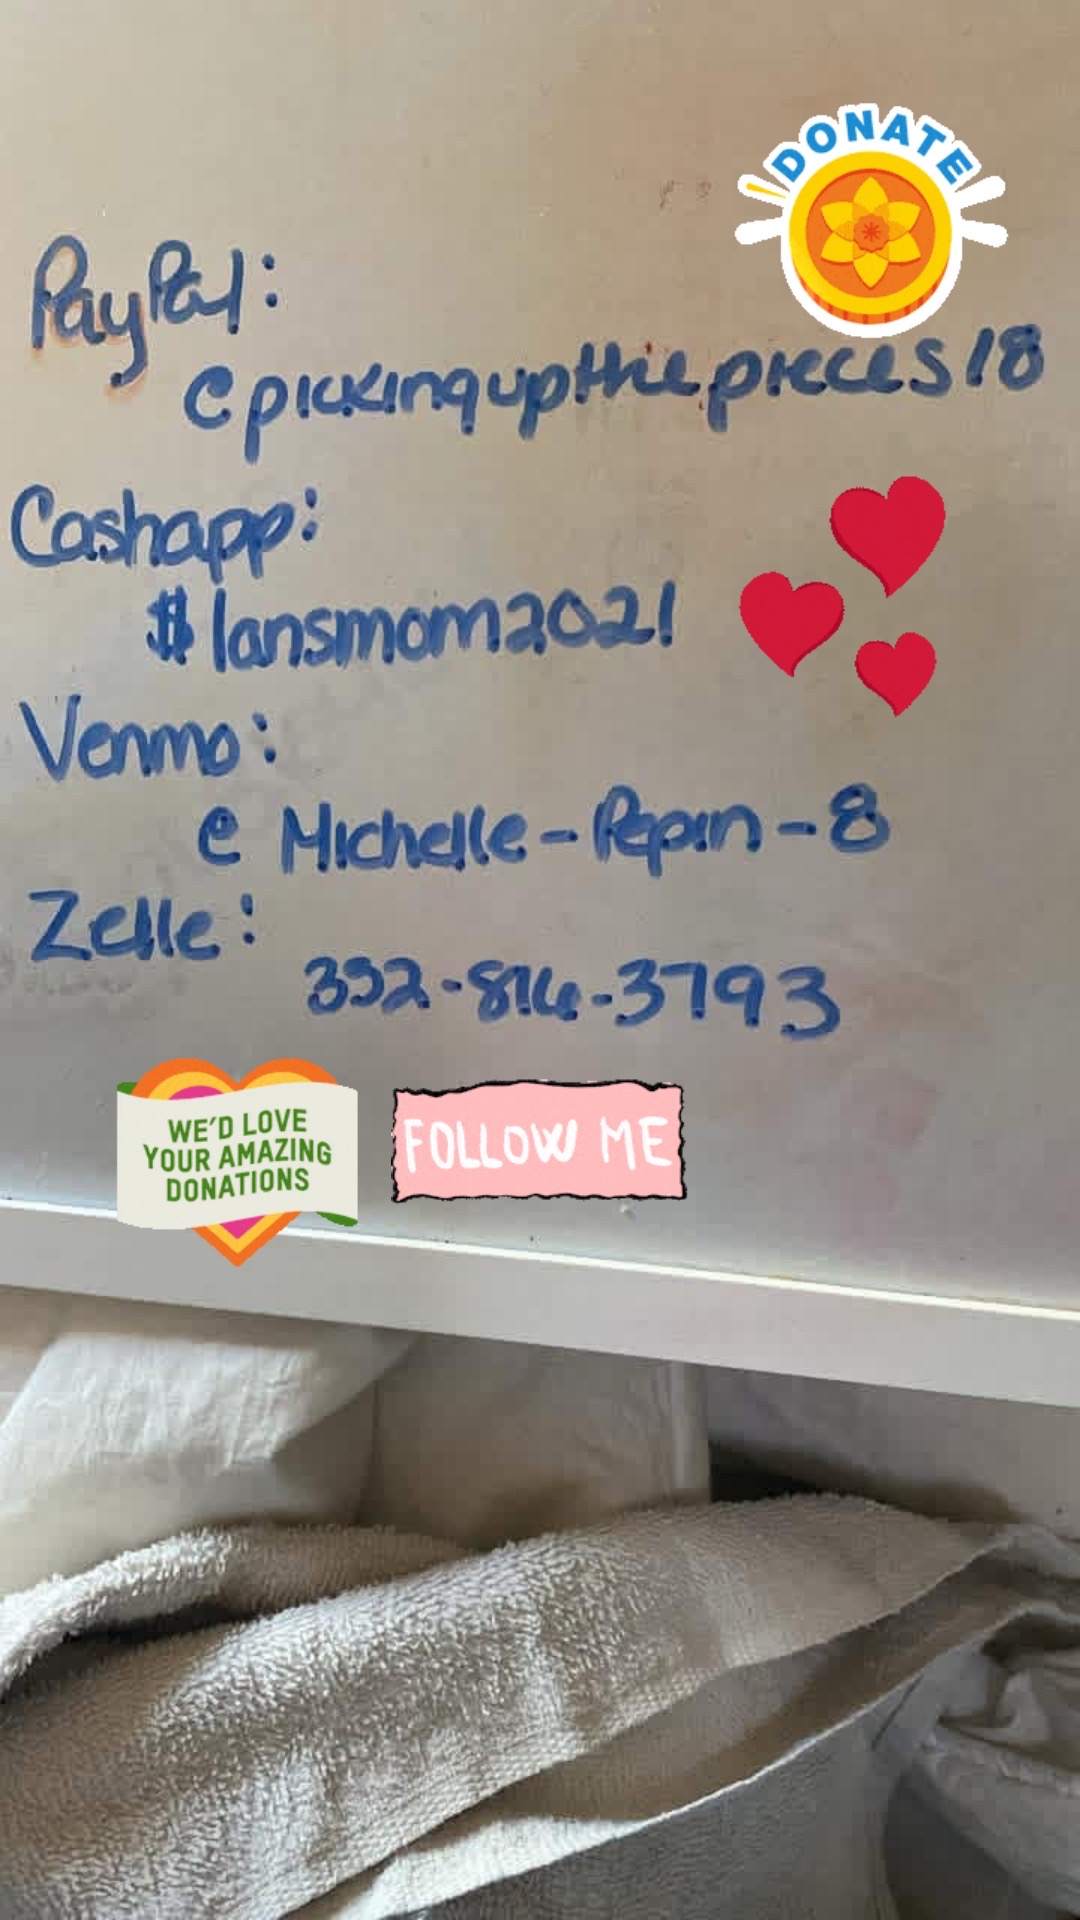 DONATE
PayPal:
@pickingupthepieces18
Cashapp:
$Iansmom2021
Venmo:
@Michelle-Pepin-8
Zelle:
332-816-3793
WE'D LOVE
YOUR AMAZING
DONATIONS
FOLLOW ME